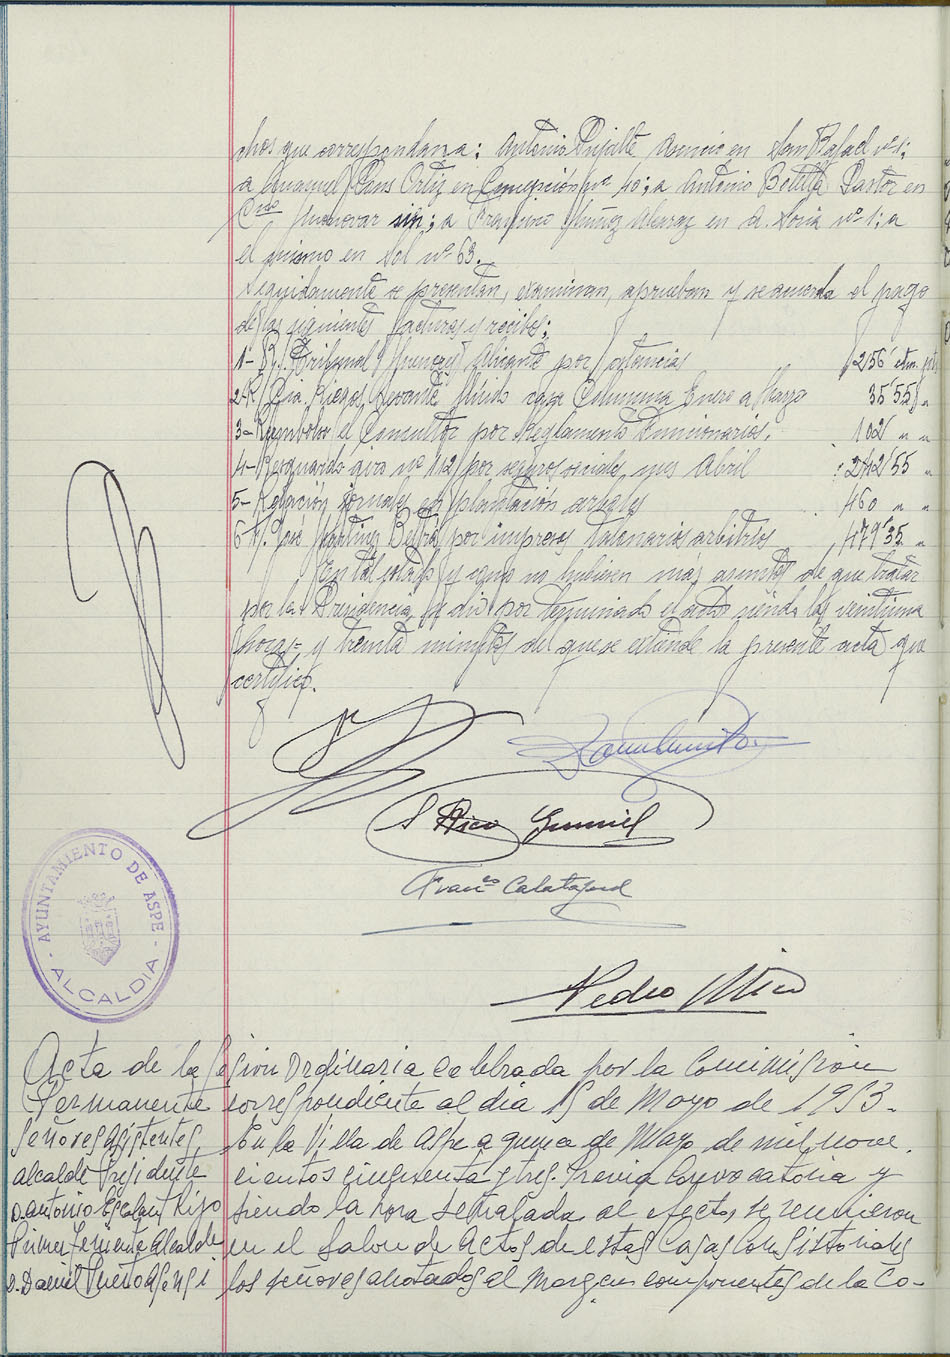 chos que correspondana: Antonio Pujalte Asencio en San Rafael nº 1;
a Manuel Pons Ortiz en Concepción nº 40; a Antonio Botella Pastor en
Cno Monovar sin; a Francisco Muñoz Alvarez en D. Soria nº 1; a
el mismo en Sol nº 63.
Seguidamente se presentan, examinan, aprueban y se acuerda el pago
de las siguientes facturas y recibos:
1- R/. Tribunal Alicante por estancias 256'
2-R/ Cia. Riegos Levante fluido casa Columna Enero a Marzo 35'55 "
3- Reembolso el Consultor por Reglamento Funcionarios. 102' " "
4- Resguardo giro nº 12 por seguros sociales mes Abril 242'55 "
5- Relación jornales en plantación arboles 460 " "
6 José Martinez Beltrá por impresos talonarios arbitrios 479'35 "
En tal estado y como no hubiesen mas asuntos de que tratar
por la Presidencia se dió por terminado el acto siendo las veintiuna
horas y treinta minutos del que se extiende la presente acta que
certifico.
S Rico Gumiel
Franco Calatayud
Pedro Mico
AYUNTAMIENTO DE ASPE
- ALCALDIA -
Acta de la Sesion Ordinaria celebrada por la Comimision
Permanente correspondiente al dia 15 de Mayo de 1953.
Señores Asistentes
Alcalde Presidente
D. Antonio Escalant Hijo
Primer Teniente Alcalde
D. Daniel Asensi
En la Villa de Aspe a quince de Mayo de mil nove
cientos cincuenta y tres. Previa Convocatoria y
siendo la hora señalada al efecto, se reunieron
en el Salon de Actos de estas Casas Consistoriales
los señores anotados al margen componentes de la Co-